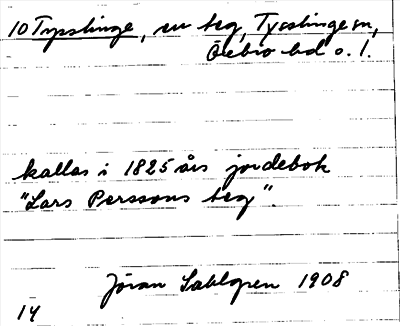 10 Tysslinge, en teg, Tysslinge sn,
Örebro hd o. l.
kallas i 1825 års jordebok
"Lars Perssons teg".
Jöran Sahlgren 1908
14